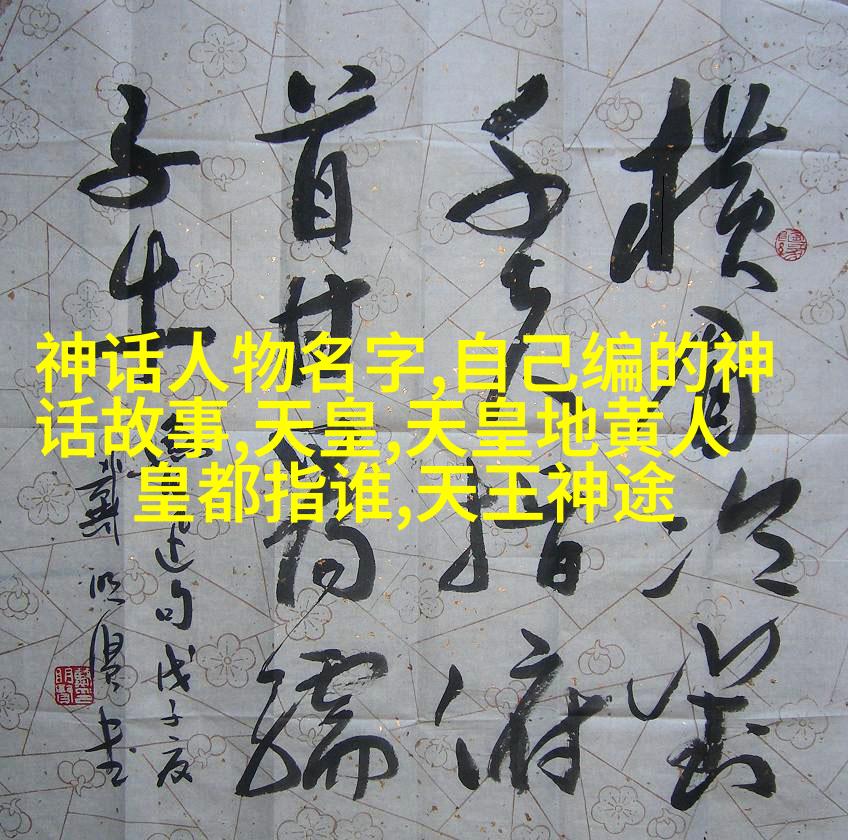 神话人物名字,自己编的神
话故事,天皇,天皇地黄人
皇都指谁,天王神途
横眉冷對
千夫指俯
首甘為孺
子牛
魯迅句戊子夏
戴明賢书